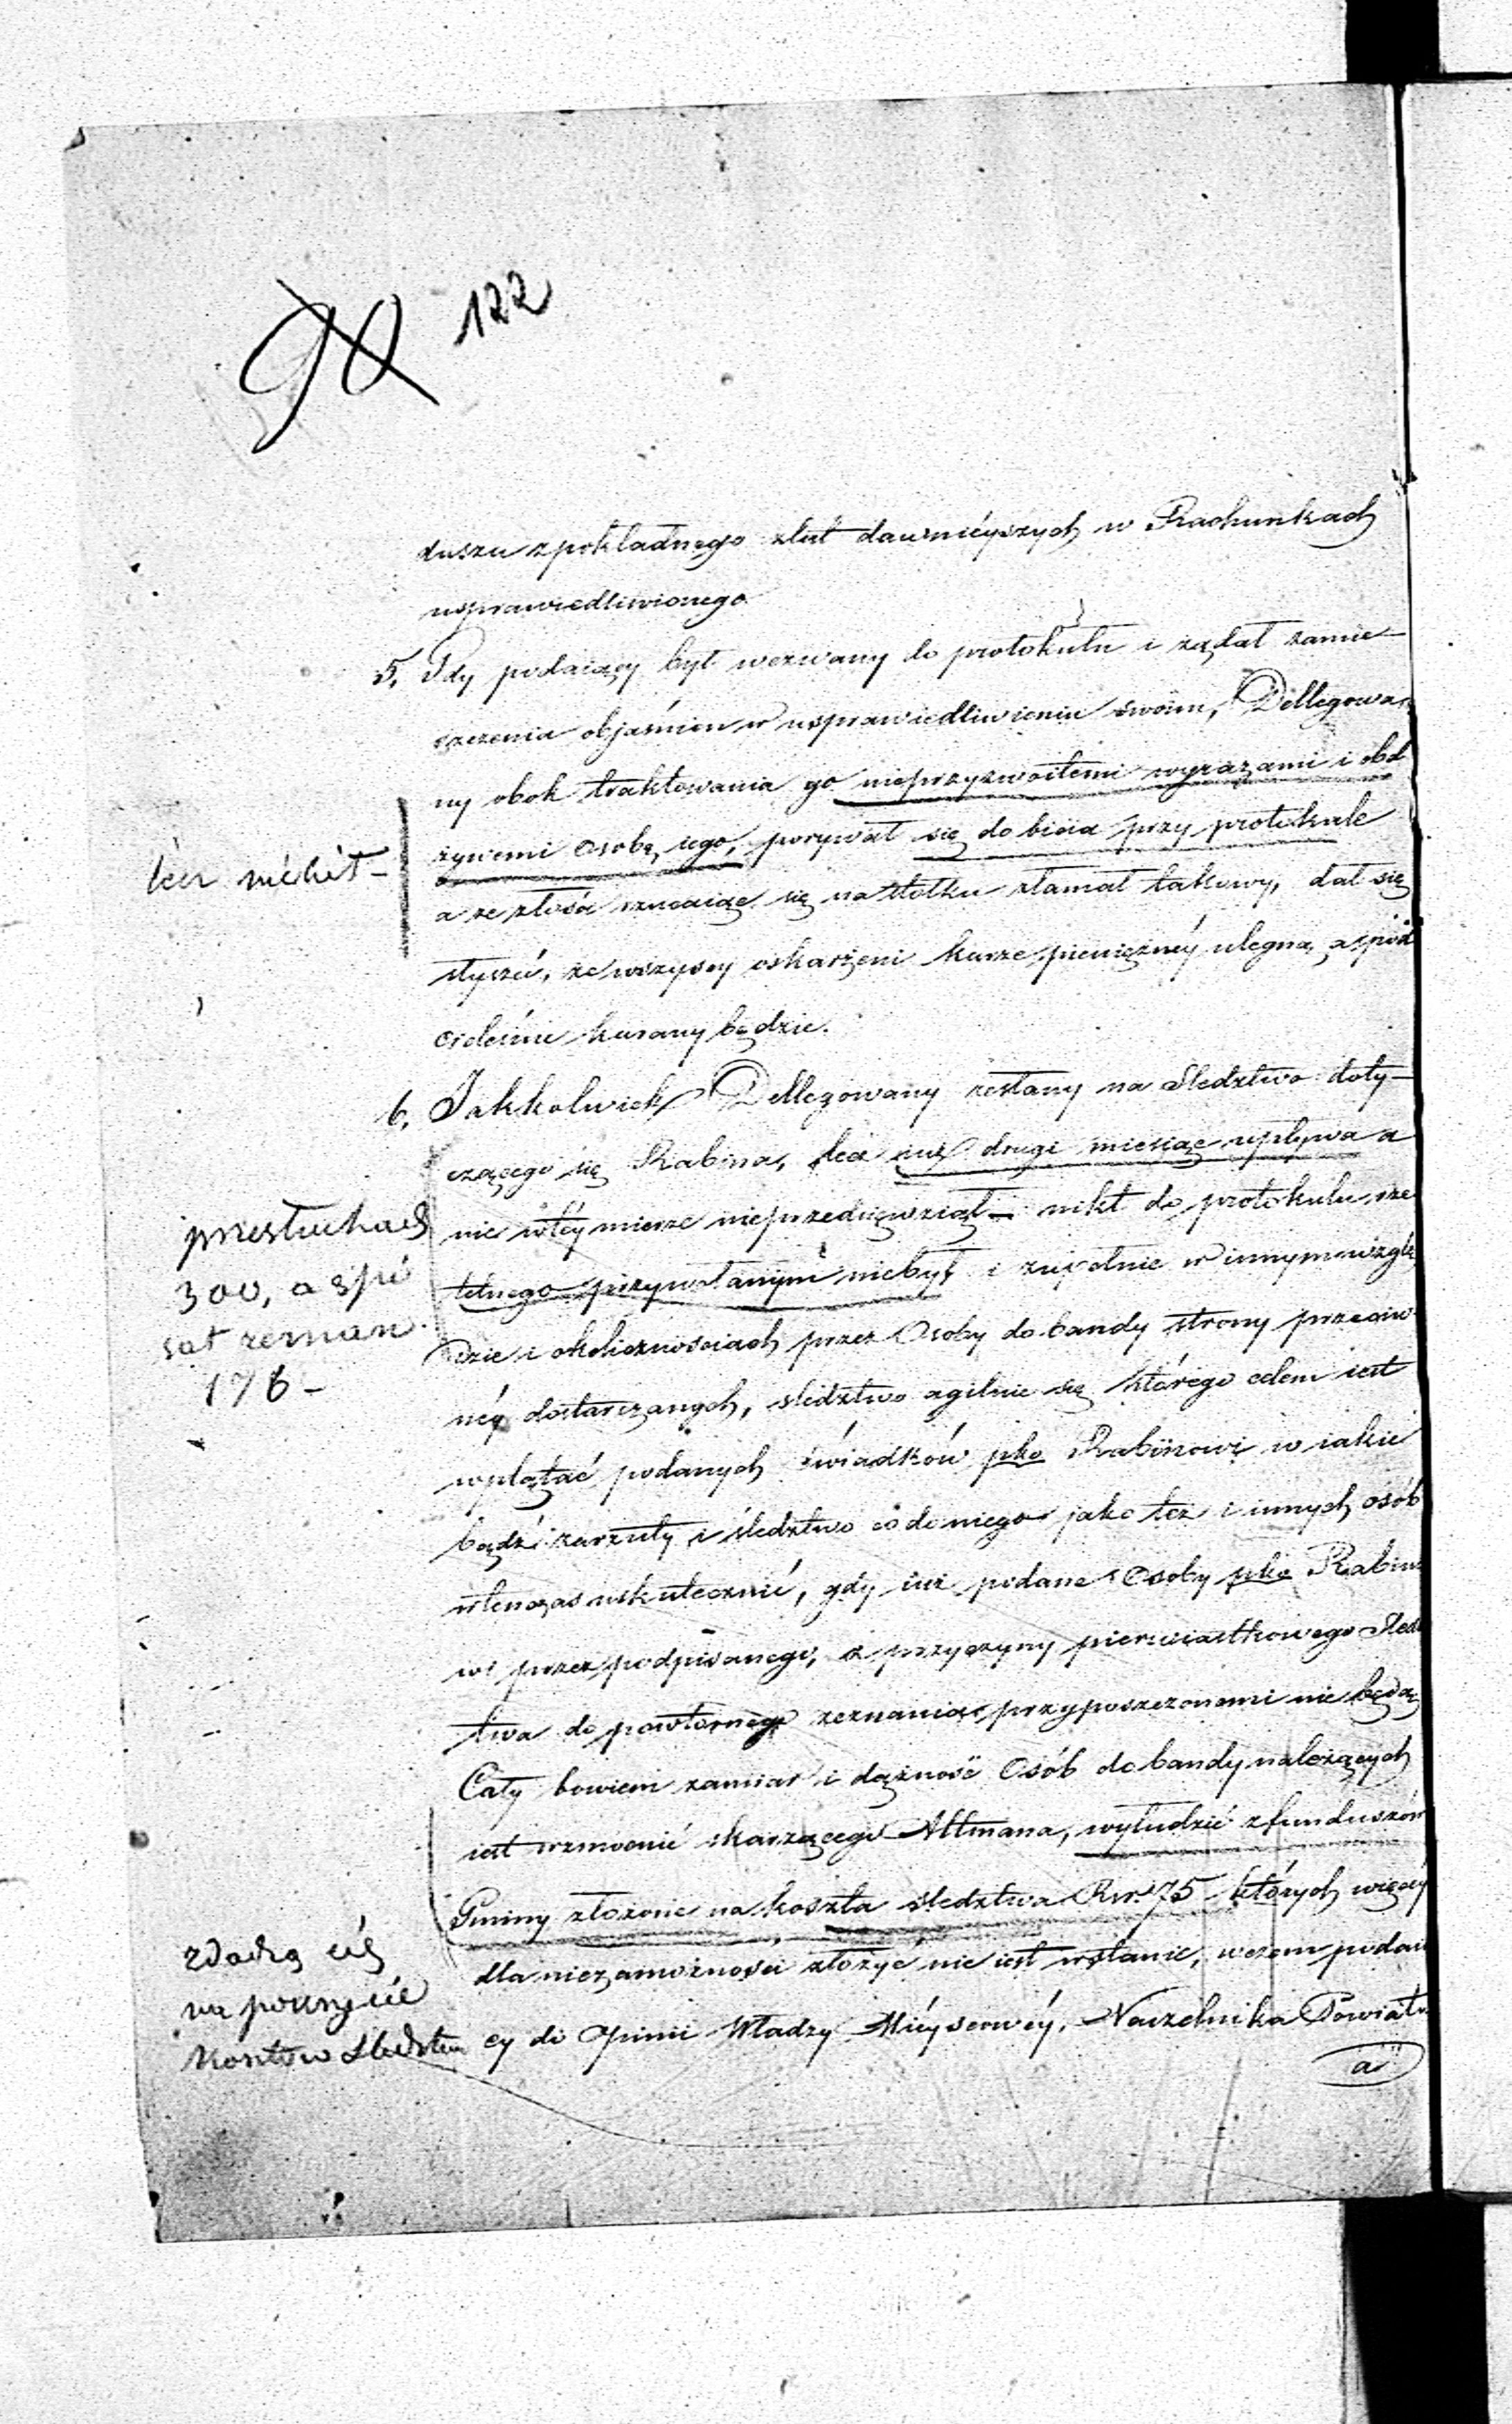 90 122
duszu z pokładnego z lat dawniéyszych w Rachunkach
usprawiedliwionego
5, Gdy podaiący był wezwany do protokułu i żądał zamie-
szczenia objaśnień w usprawiedliwieniu swoim, Dellegowa-
ny obok traktowania go nieprzyzwoitemi wyrazami i obel
żywemi Osobę iego, porywał się do bicia przy protokule
a ze złości rzucaiąc się na stołku złamał takowy, dał się
słyszéć, że wszyscy oskarżeni karze pieniężnéy ulegną, a
cieleśnie karany będzie.
6, Jakkolwiek Dellegowany zesłany na Sledztwo doty-
czącego się Rabina, lecz iuż drugi miesiąc upływa a
nic w téy mierze nieprzedsięwziął - nikt do protokułu rze
telnego przywołanym niebył i zupełnie w innym wzglę
dzie i okolicznościach przez Osoby do bandy strony przeciw
néy dostarczanych, sledztwo agituie się którego celem iest
wplątać podanych świadków pko Rabinowi w iakie
bądź zarzuty i śledztwo co do niego jako też i innych osób
wtenczas uskutecznić, gdy iuż podane Osoby pko Rabino
wi przez podpisanego, z przyczyny pierwiastkowego Sledz
twa do powtornego zeznania przypuszczonemi nie będą
Cały bowiem zamiar i dążność Osób do bandy należących
iest wzmocnić skarżącego Altmana, wyłudzić z funduszów
Gminy złożone na koszta śledztwa Rsr 75 których więcéy
dla niezamożności złożyć nie iest wstanie, w czem podaią
cy do Opinii Władzy Miéyscowéy, Naczelnika Powiatu
a
przesłuchać
300, a
176 -
na pokrycie
kosztów Sledztwa